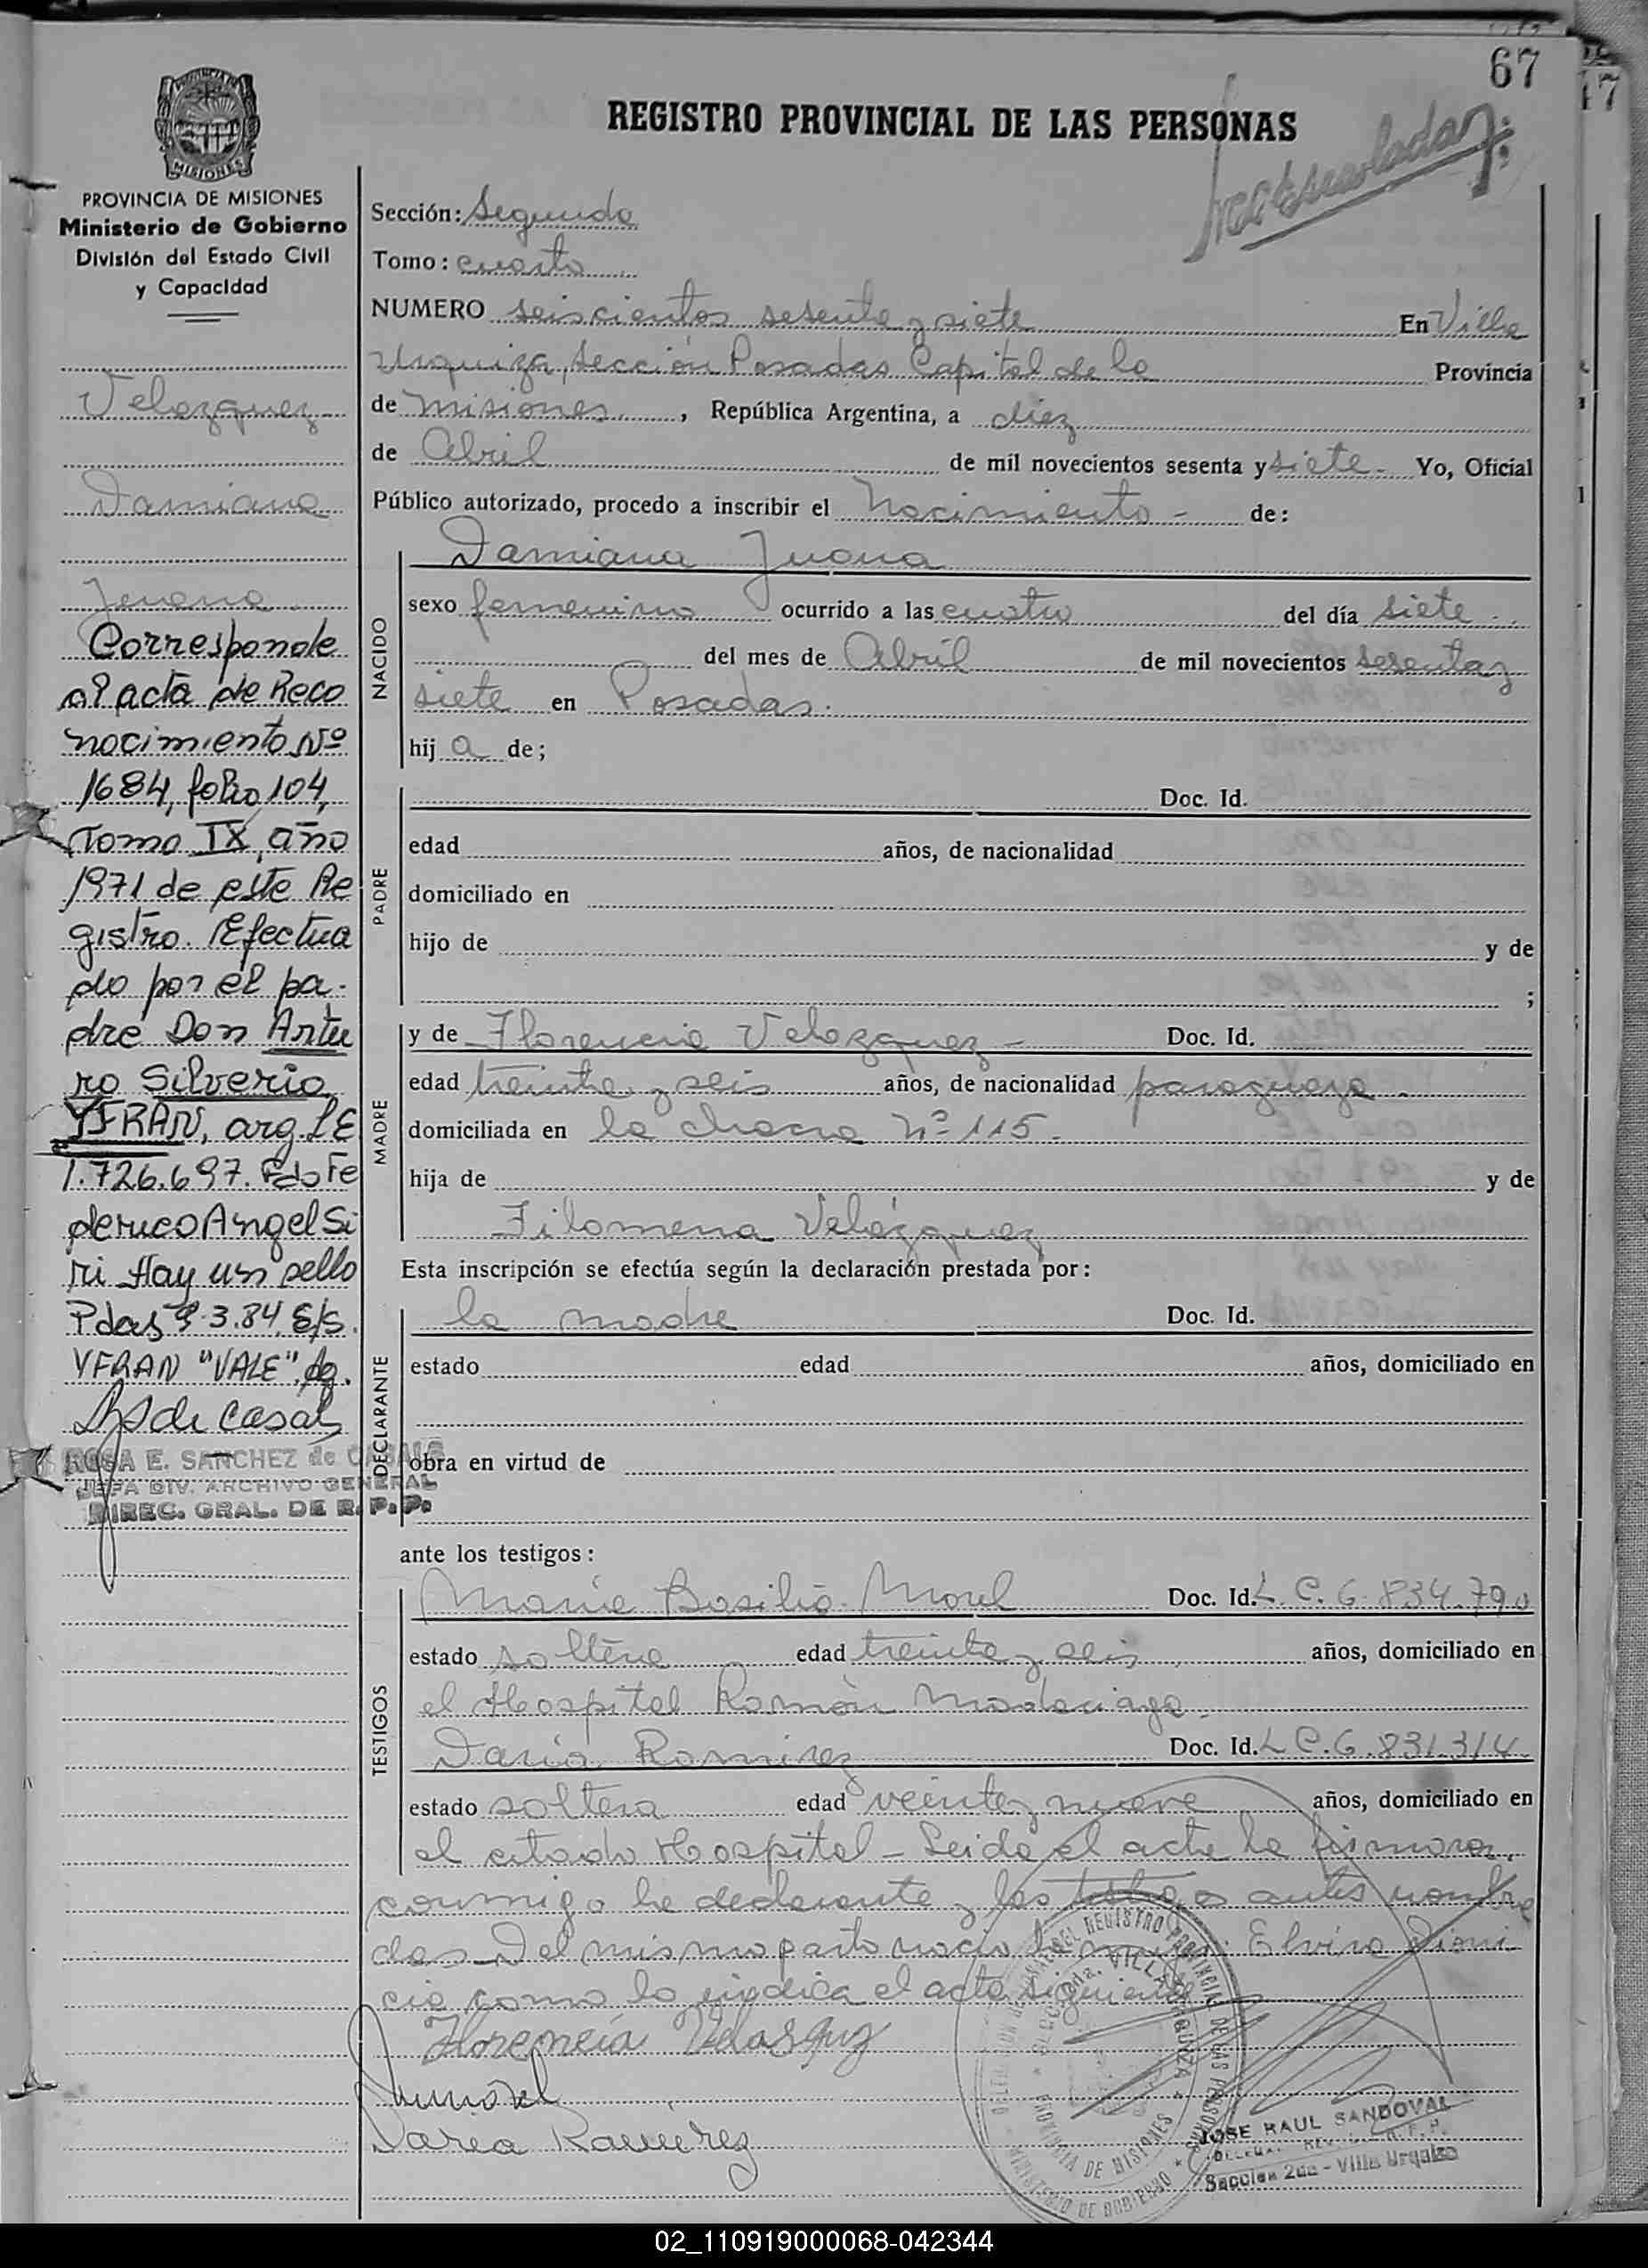 67
47
REGISTRO PROVINCIAL DE LAS PERSONAS
MISIONES
PROVINCIA DE MISIONES
Ministerio de Gobierno
División del Estado Civil
y Capacidad
Velazquez
Damiana
Juana
Corresponde
al acta de Reco
nocimiento Nº
1684, folio 104,
Tomo IX, año
1971 de este Re
gistro. Efectua
do por el pa-
dre Don Artu
ro Silverio
YFRAN, arg. LE
1.726.697. Fdo Fe
derico Angel Si
ri Hay un sello
Pdas 9.3.84. E/S.
YFRAN "VALE".
de Casals
ROSA E. SANCHEZ de CASALS
JEFA DIV. ARCHIVO GENERAL
DIREC. GRAL. DE R.P.P.
Sección: Segunda
Tomo: cuarto
NUMERO seiscientos sesenta y siete En Villa
Urquiza, sección Posadas Capital de la Provincia
de Misiones, República Argentina, a diez
de Abril de mil novecientos sesenta y siete. Yo, Oficial
Público autorizado, procedo a inscribir el Nacimiento - de:
NACIDO
Damiana Juana
sexo femenino ocurrido a las cuatro del día siete
del mes de Abril de mil novecientos sesenta y
siete en Posadas.
hij a de;
PADRE
Doc. Id.
edad años, de nacionalidad
domiciliado en
hijo de y de
;
MADRE
y de Florencia Velazquez - Doc. Id.
edad treinta y seis años, de nacionalidad paraguaya.
domiciliada en la chacra Nº 115.
hija de y de
Filomena Velázquez
Esta inscripción se efectúa según la declaración prestada por:
DECLARANTE
la madre Doc. Id.
estado edad años, domiciliado en
obra en virtud de
ante los testigos:
TESTIGOS
María Basilia Morel Doc. Id. L.C. 6.834.790
estado soltera edad treinta y seis años, domiciliado en
el Hospital Ramón Madariaga.
Daría Ramirez Doc. Id. L.C. 6.831.314
estado soltera edad veinte y nueve años, domiciliado en
el citado Hospital - Leida el acta la firmaron
conmigo la declarante y los testigos antes nombra
dos - Del mismo parto nació Elvira Dioni-
cia como lo indica el acta siguiente
Florencia Velasquz
Daria Ramirez
JOSE RAUL SANDOVAL
Sección 2da - Villa Urquiza
02_110919000068-042344